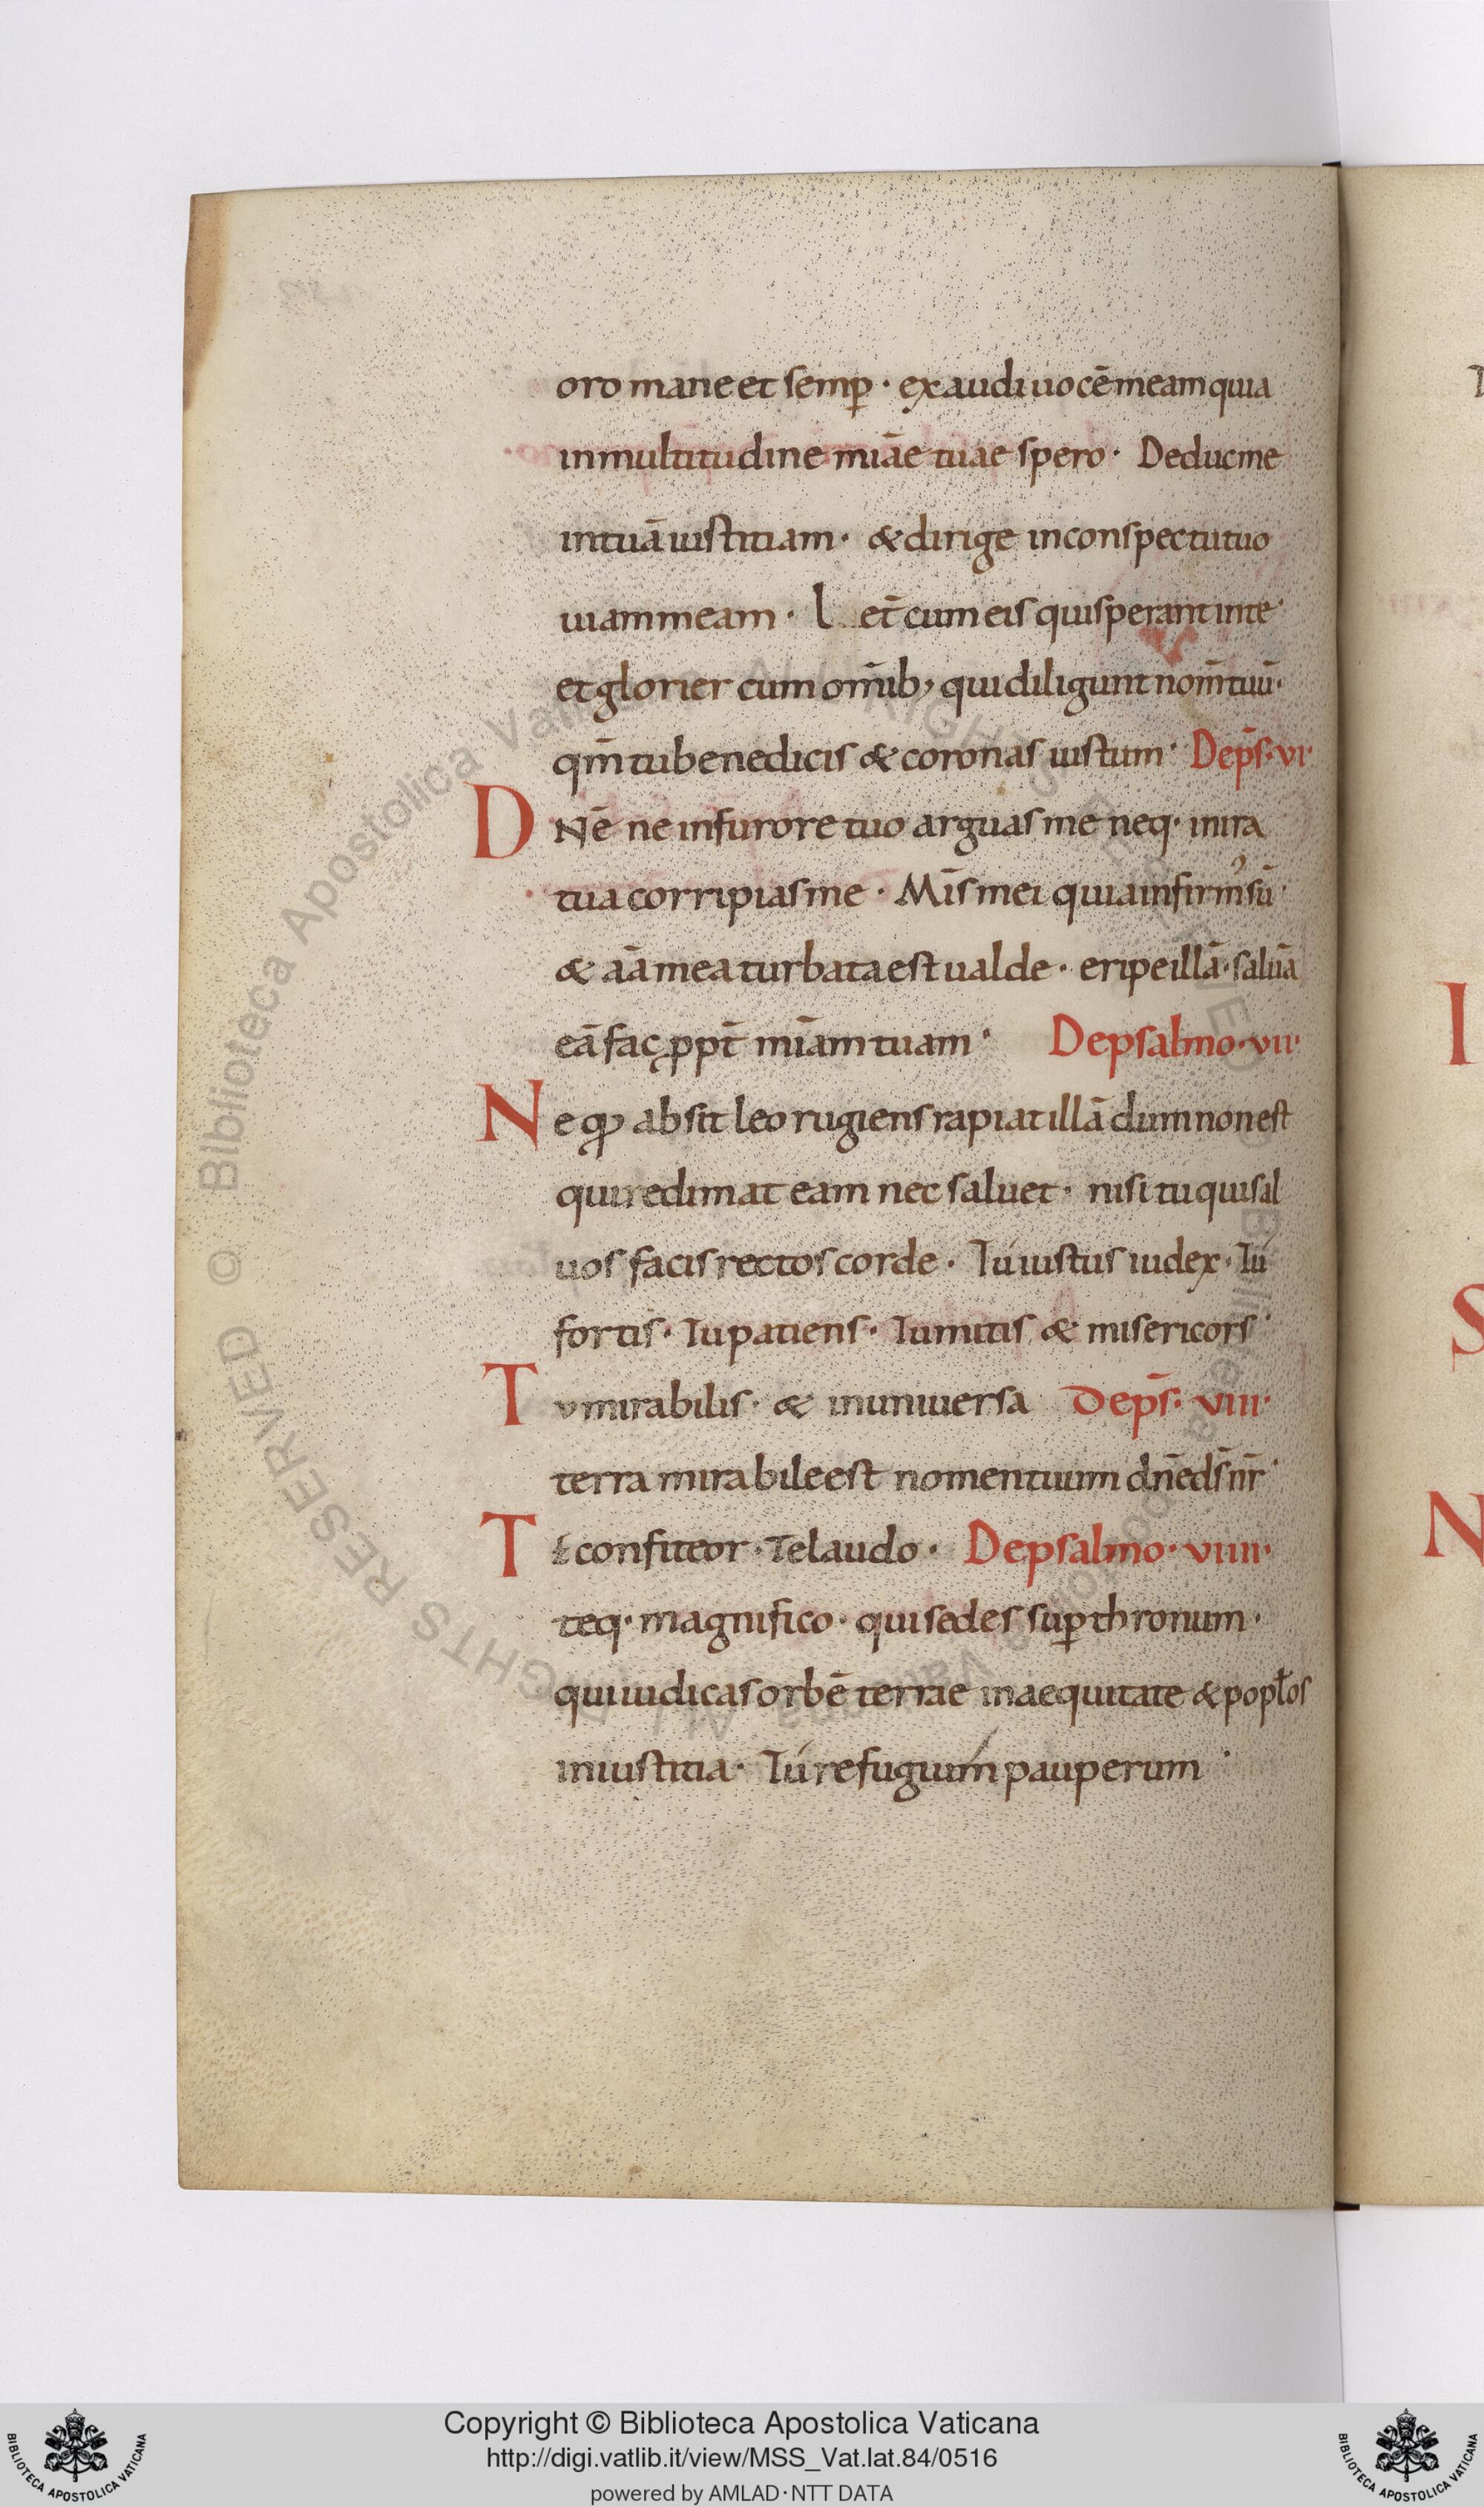 oro mane et semp̄ · exaudi uocē meam quia
in multitudine miāe tuae spero · Deduc me
in tuā iustitiam · & dirige in conspectu tuo
uiam meam · L et̄ cum eis qui sperant in te ·
et glorier cum om̄ib; qui diligunt nom̄ tuū ·
qm̄ tu benedicis & coronas iustum · De ps̄ · VI ·
D Nē ne in furore tuo arguas me neq · in ira
tua corripias me · Mis̄ mei quia infirmꝰ sū ·
& aā mea turbata est ualde · eripe illā · saluā
eā fac ꝓpt̄ miām tuam · De psalmo · VII ·
N e qn̄do absit leo rugiens rapiat illā dum non est
qui redimat eam nec saluet · nisi tu qui sal
uos facis rectos corde · Tú iustus iudex · Tú
fortis · Tu patiens · Tu mitis & misericors ·
T u mirabilis · & in uniuersa De ps̄ · VIII ·
terra mirabile est nomen tuum dnē ds̄ nr̄ ·
T e confiteor · Te laudo · De psalmo · VIIII ·
teq · magnifico · qui sedes sup̄ thronum ·
qui iudicas orbē terrae in aequitate & popl̄os
in iustitia · Tú refugium pauperum ·
Copyright © Biblioteca Apostolica Vaticana
http://digi.vatlib.it/view/MSS_Vat.lat.84/0516
powered by AMLAD·NTT DATA